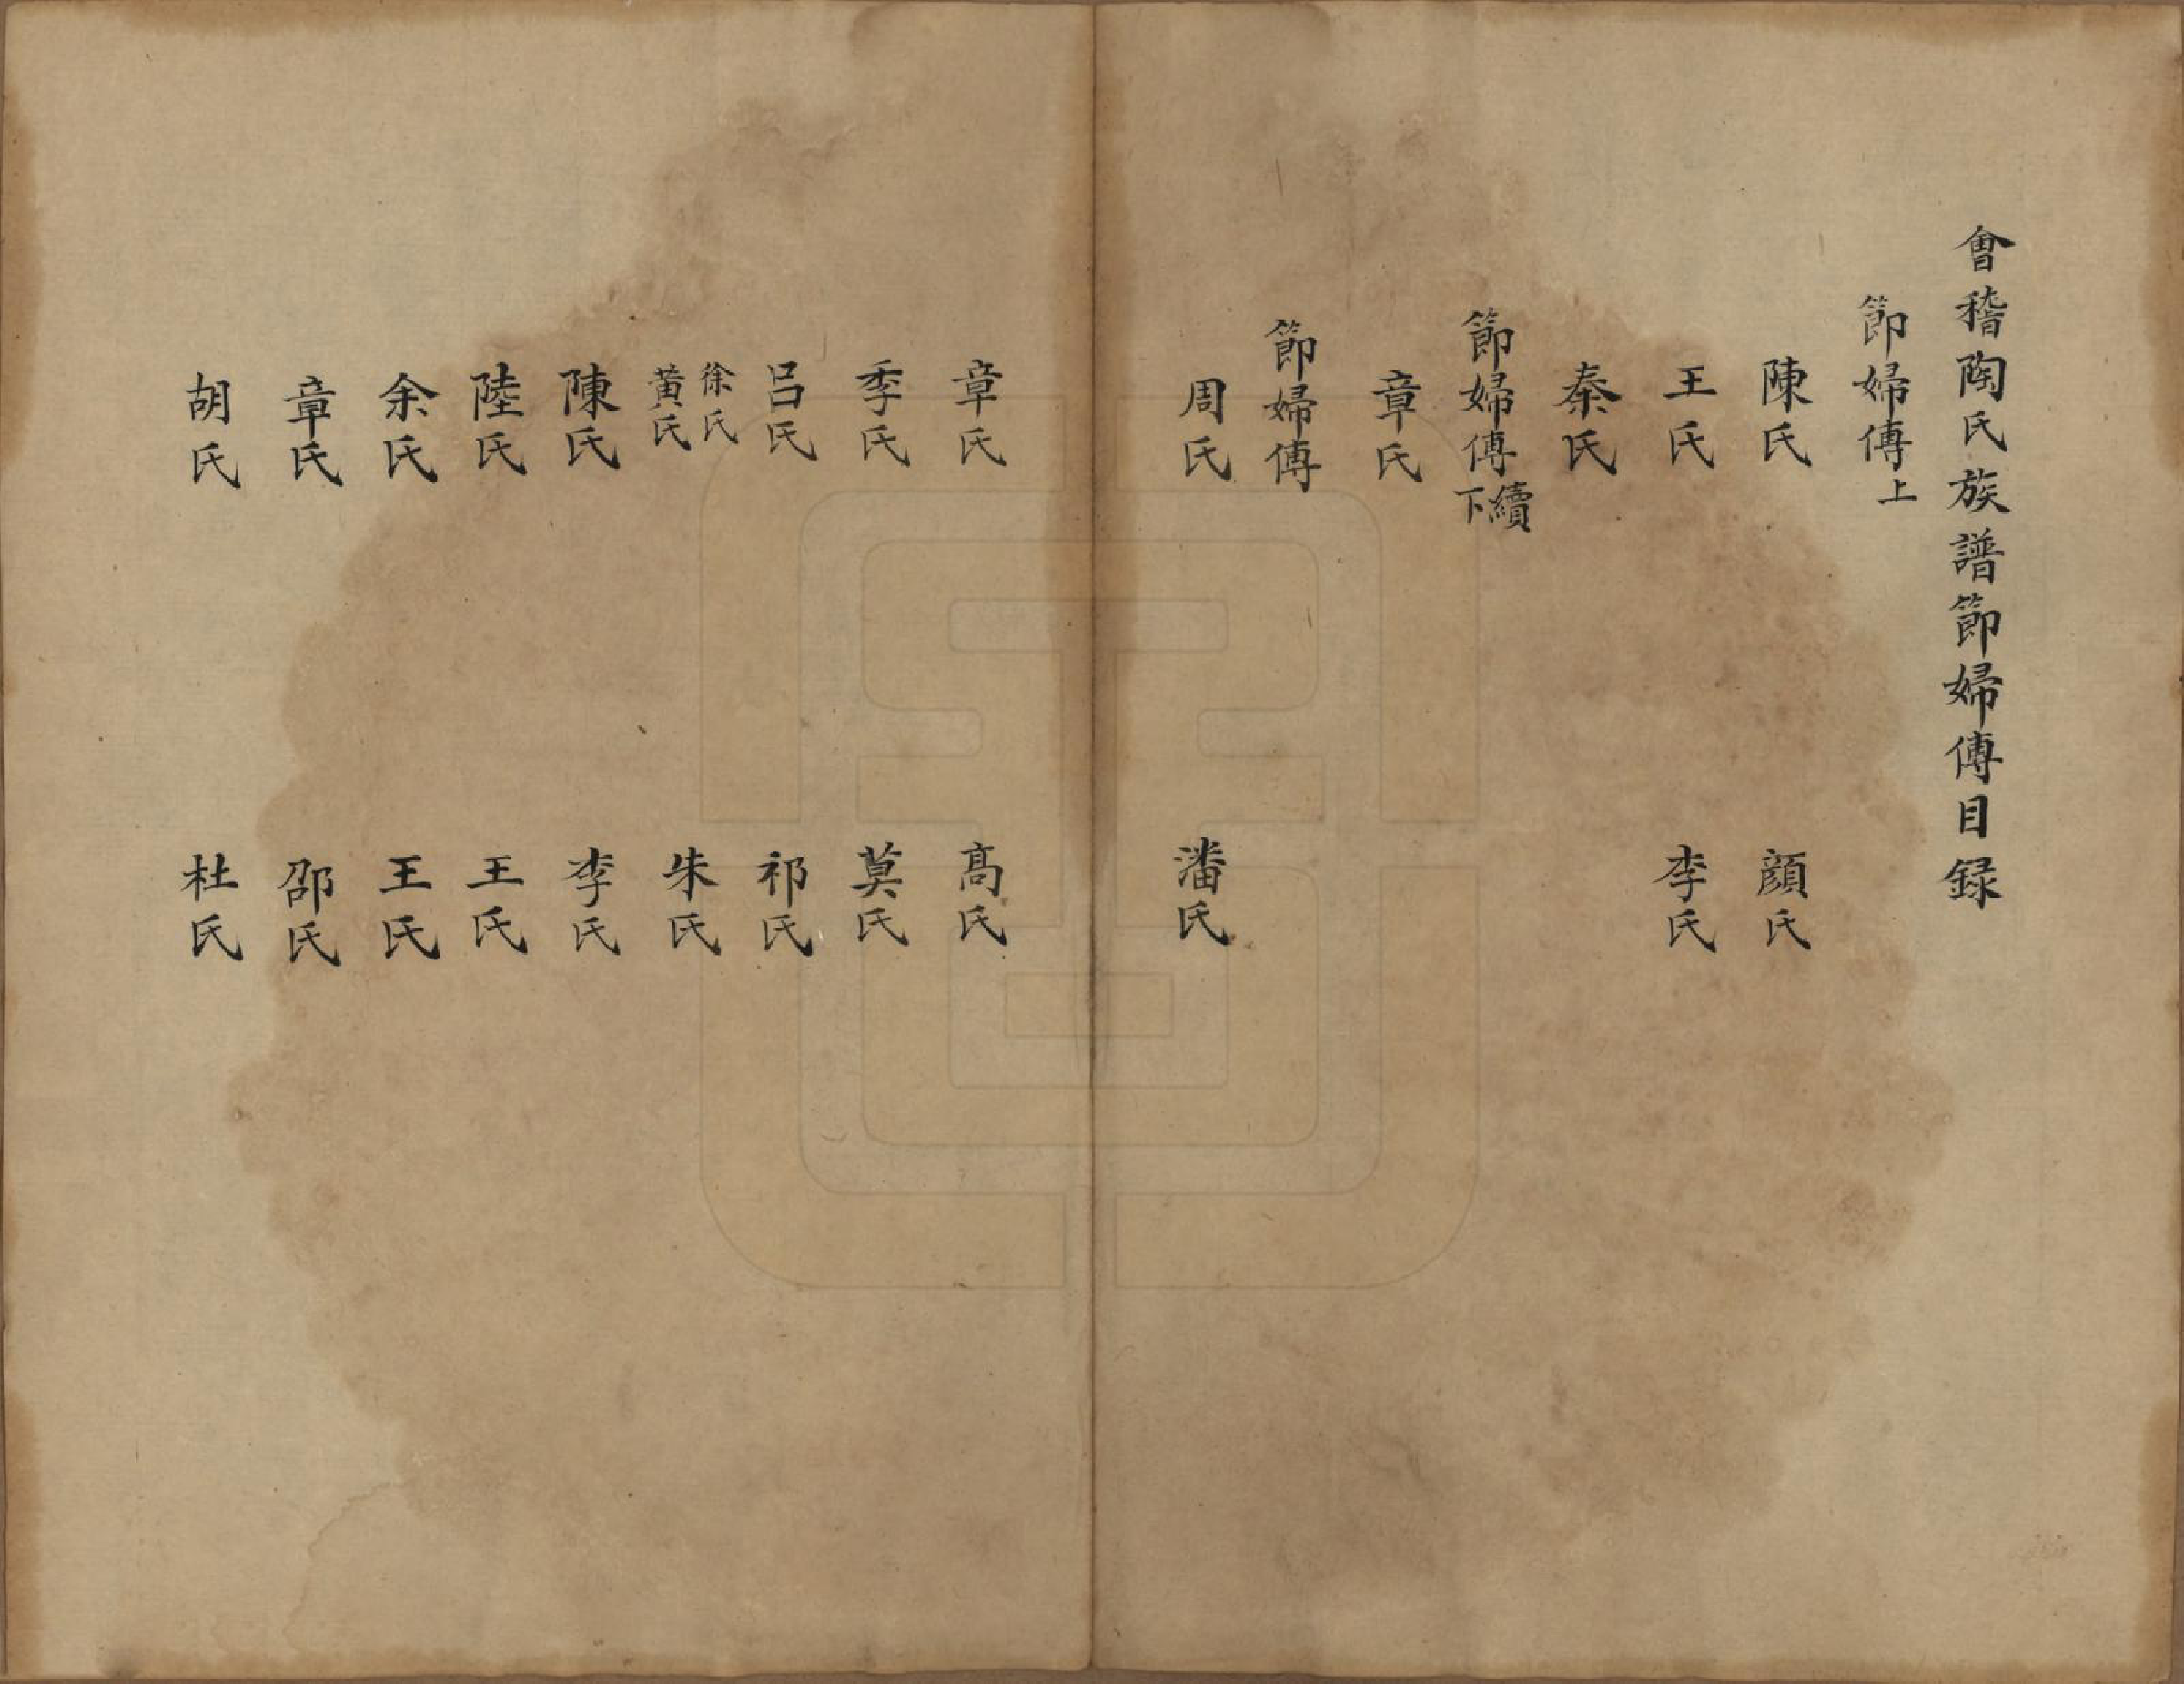 會稽陶氏族譜節婦傳目録
節婦傳上
陳氏 顔氏
王氏 李氏
秦氏
節婦傳續下
章氏
節婦傳
周氏 潘氏
章氏 髙氏
季氏 莫氏
吕氏 祁氏
徐氏 黄氏 朱氏
陳氏 李氏
陸氏 王氏
余氏 王氏
章氏 邵氏
胡氏 杜氏